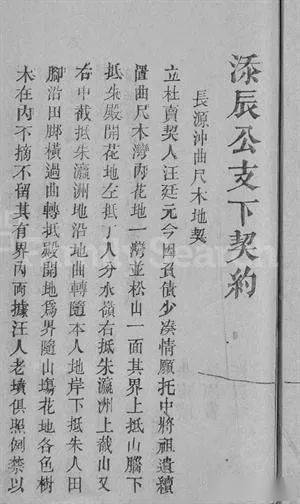 添辰公支下契約
長源沖曲尺木地契
立杜賣契人汪廷元今因負債少湊情願托中將祖遺續
置曲尺木灣內花地一灣並松山一面其界上抵山腦下
抵朱殿開花地左抵丁入分水嶺右抵朱瀛洲上截山又
右中截抵朱瀛洲地沿曲轉隨本人地岸下抵朱人田
腳沿田腳橫過曲轉抵殿開地爲界隨山塲花地各色樹
木在內不摘不留其有界內兩據汪人老墳俱照例禁以